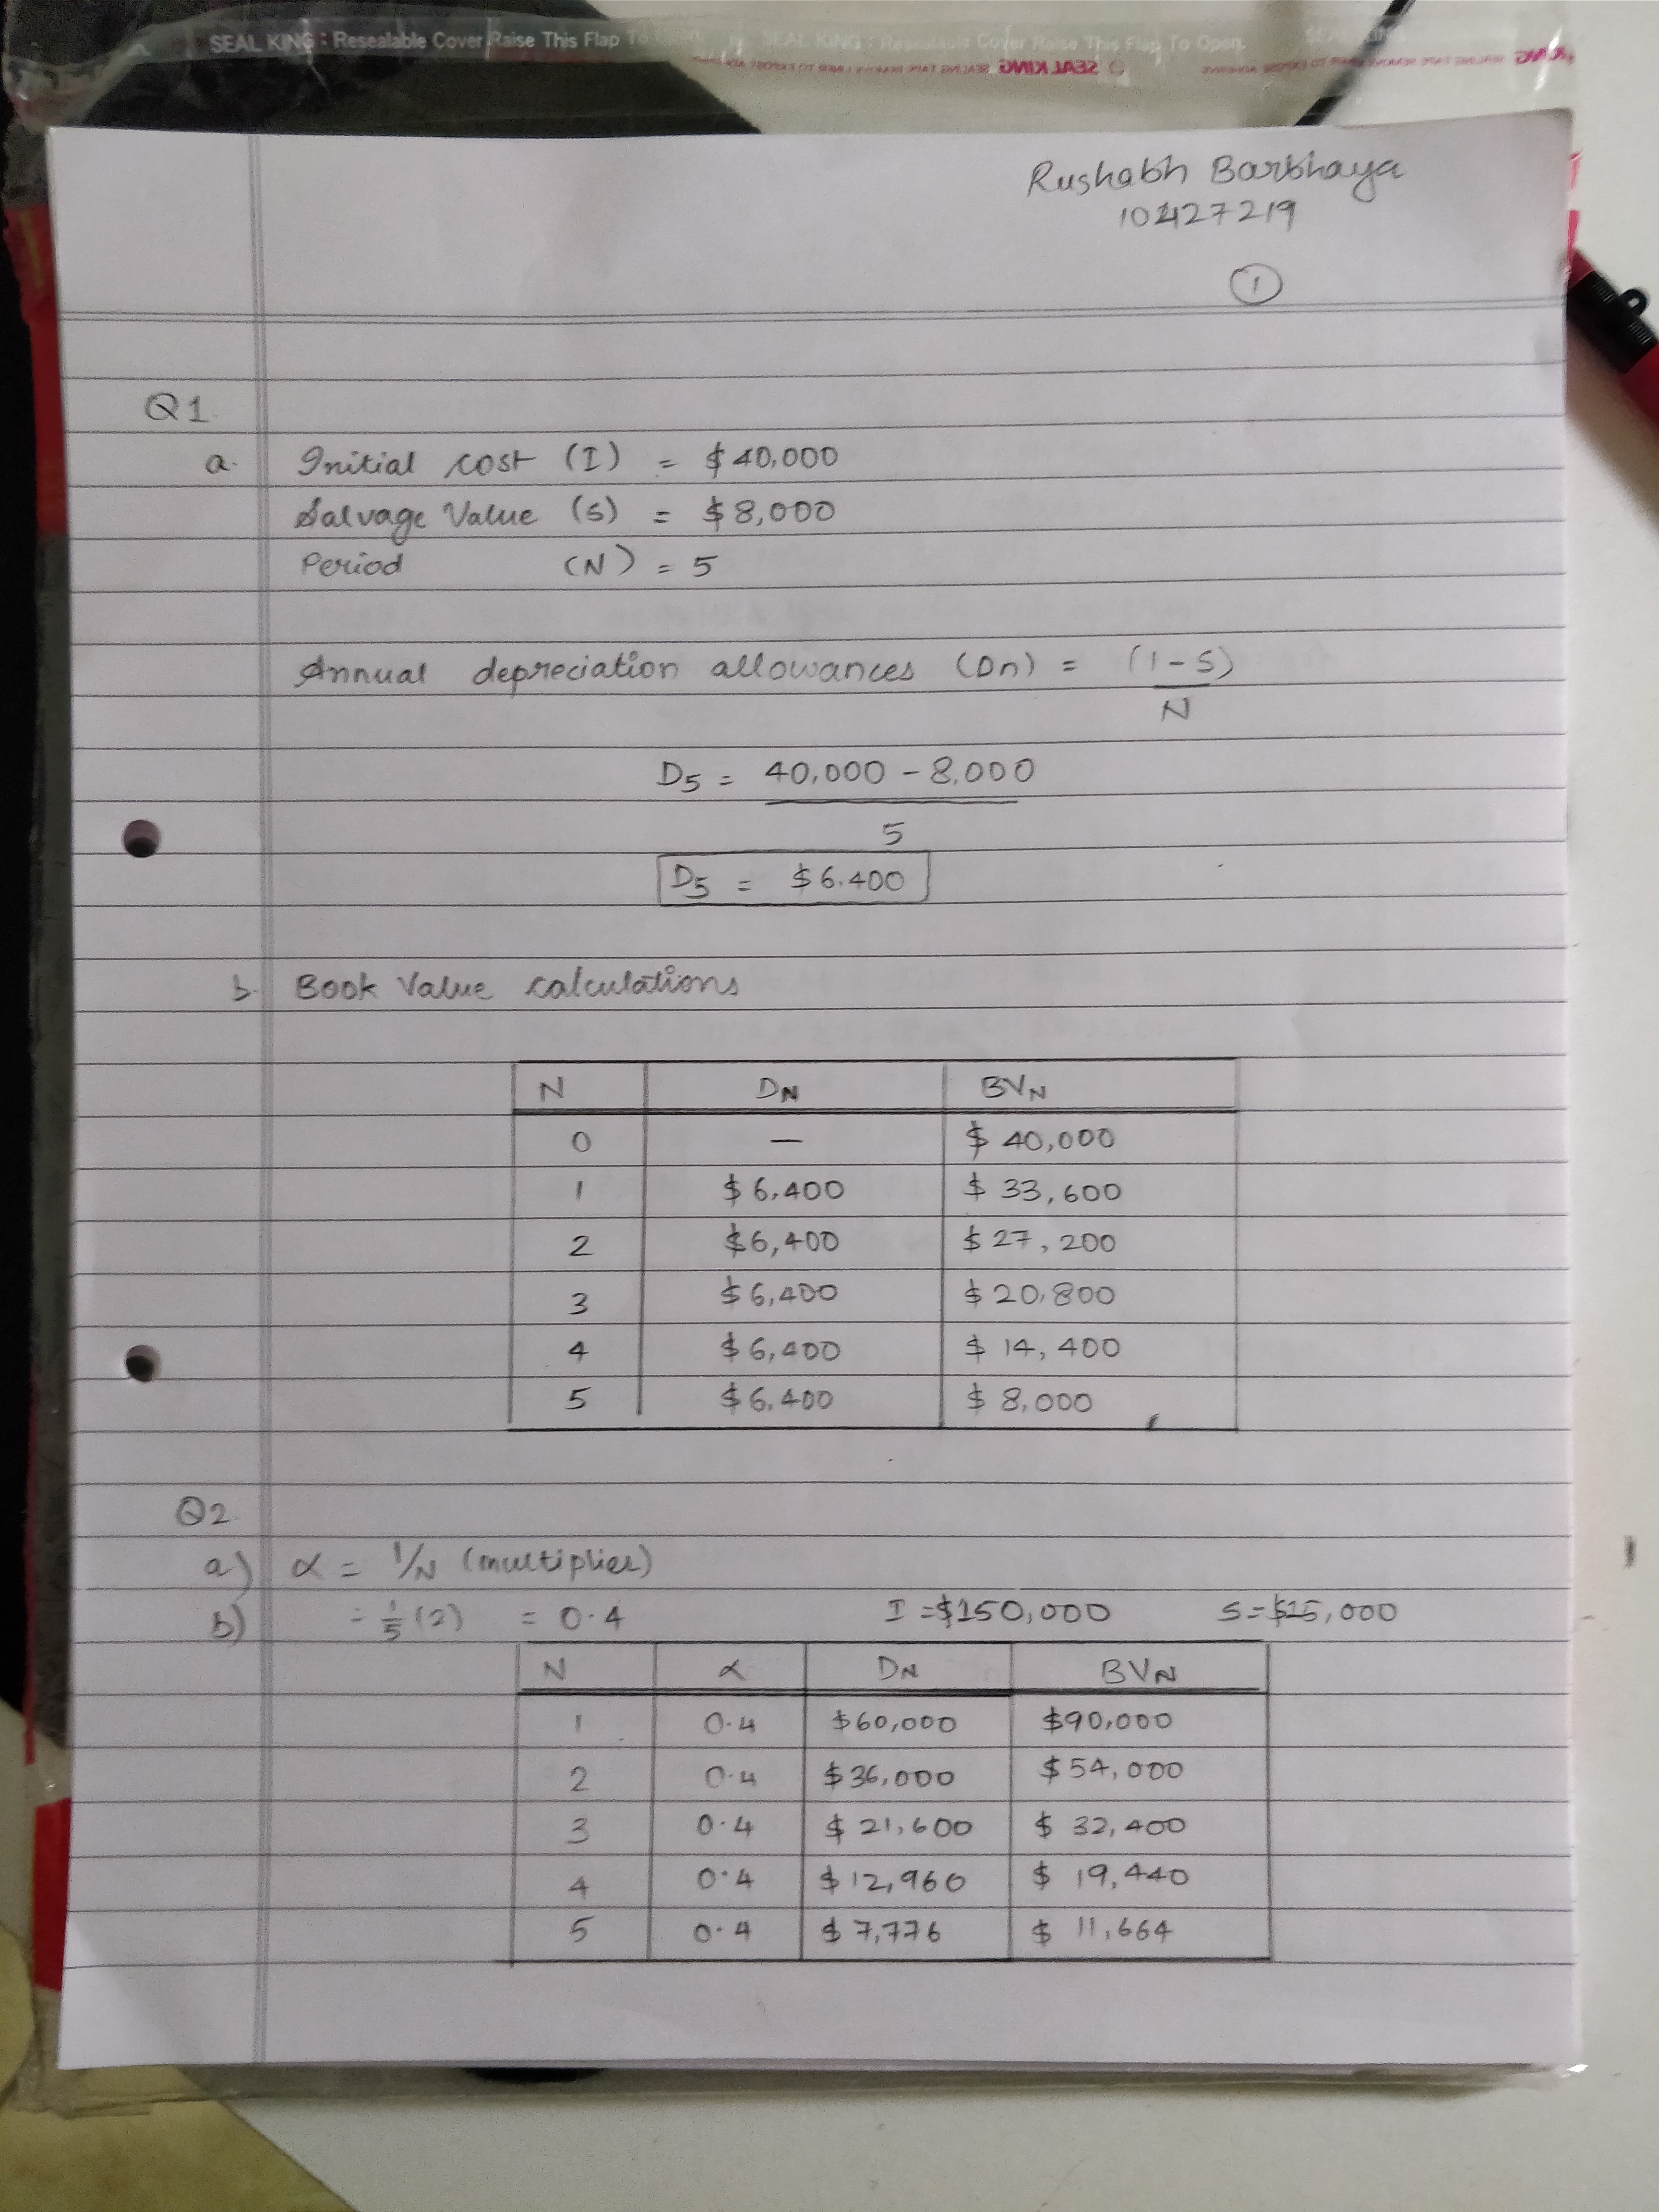 SEAL KING : Resealable Cover Raise This Flap To Open. SEAL KING : Resealable Cover Raise This Flap To Open.
SEAL KING
Rushabh Barbhaya
1
Q1.
a. Initial cost (I) = $40,000
Salvage Value (S) = $8,000
Period (N) = 5
Annual depreciation allowances (Dn) = (I-S)
N
D5 = 40,000 - 8,000
5
D5 = $6.400
b. Book Value calculations
N DN BVN
0 — $ 40,000
1 $6,400 $ 33,600
2 $6,400 $ 27,200
3 $6,400 $ 20,800
4 $6,400 $ 14,400
5 $6,400 $ 8,000
Q2
a) α = 1/N (multiplier)
b) = 1/5 (2) = 0.4 I = $150,000 S = $15,000
N α DN BVN
1 0.4 $60,000 $90,000
2 0.4 $36,000 $54,000
3 0.4 $ 21,600 $ 32,400
4 0.4 $12,960 $ 19,440
5 0.4 $ 7,776 $ 11,664